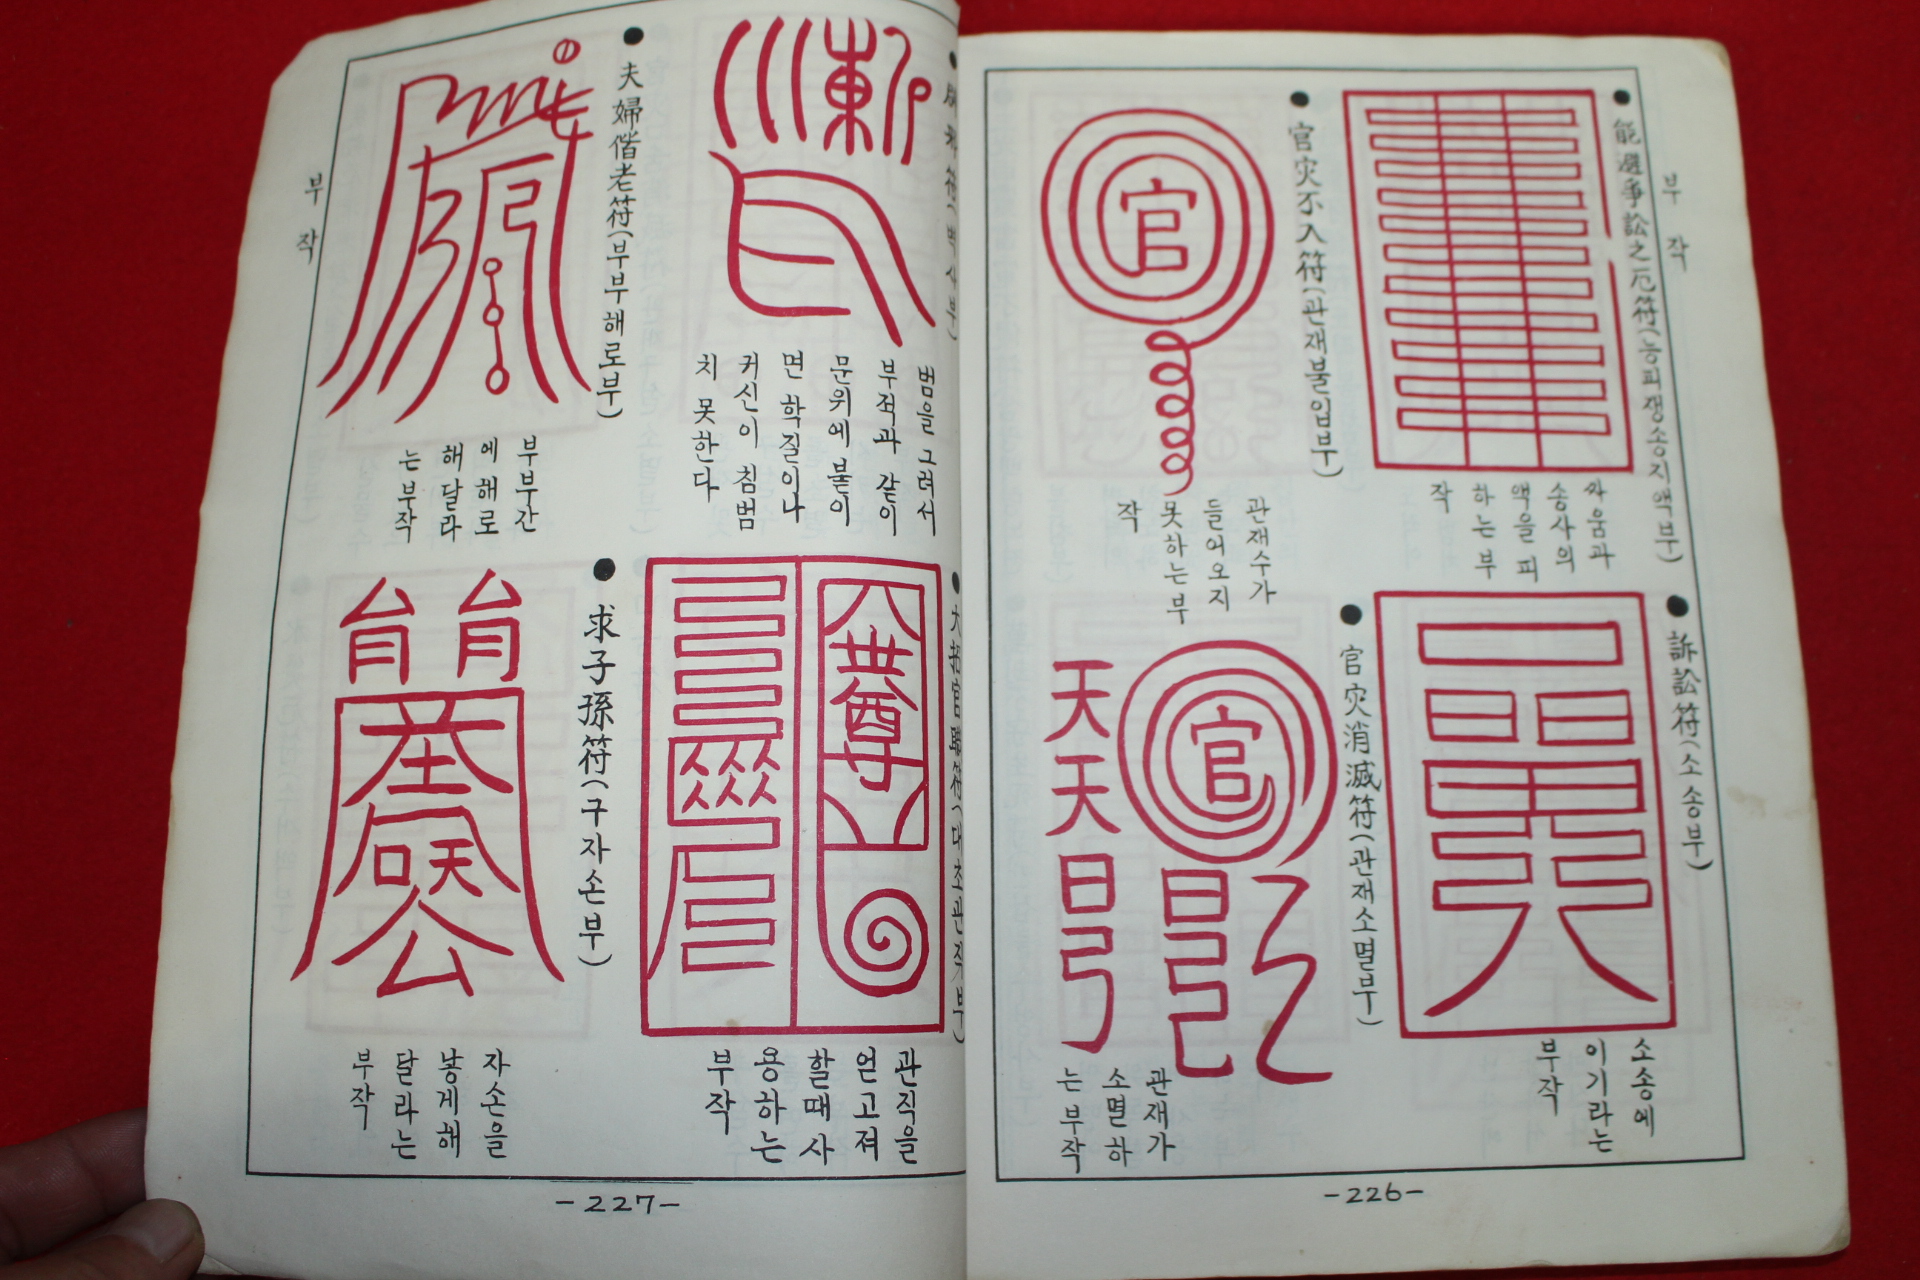 부작
能避爭訟之厄符(능피쟁송지액부)
싸움과
송사의
액을 피
하는 부
작
官灾不入符(관재불입부)
官
관재수가
들어오지
못하는 부
작
訴訟符(소송부)
소송에
이기라는
부작
官灾消滅符(관재소멸부)
官
天
天
관재가
소멸하
는 부작
-226-
범을 그려서
부적과 같이
문위에 붙이
면 학질이나
귀신이 침범
치 못한다
夫婦偕老符(부부해로부)
부부간
에 해로
해달라
는 부작
부작
大招官職符(대초관직부)
世尊
관직을
얻고져
할때 사
용하는
부작
求子孫符(구자손부)
자손을
낳게해
달라는
부작
-227-